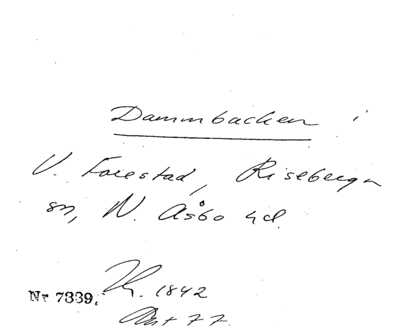 Dammbacken i
V. Forestad, Riseberga
sn, N. Åsbo hd.
Nr 7339. 1842
Akt 77.